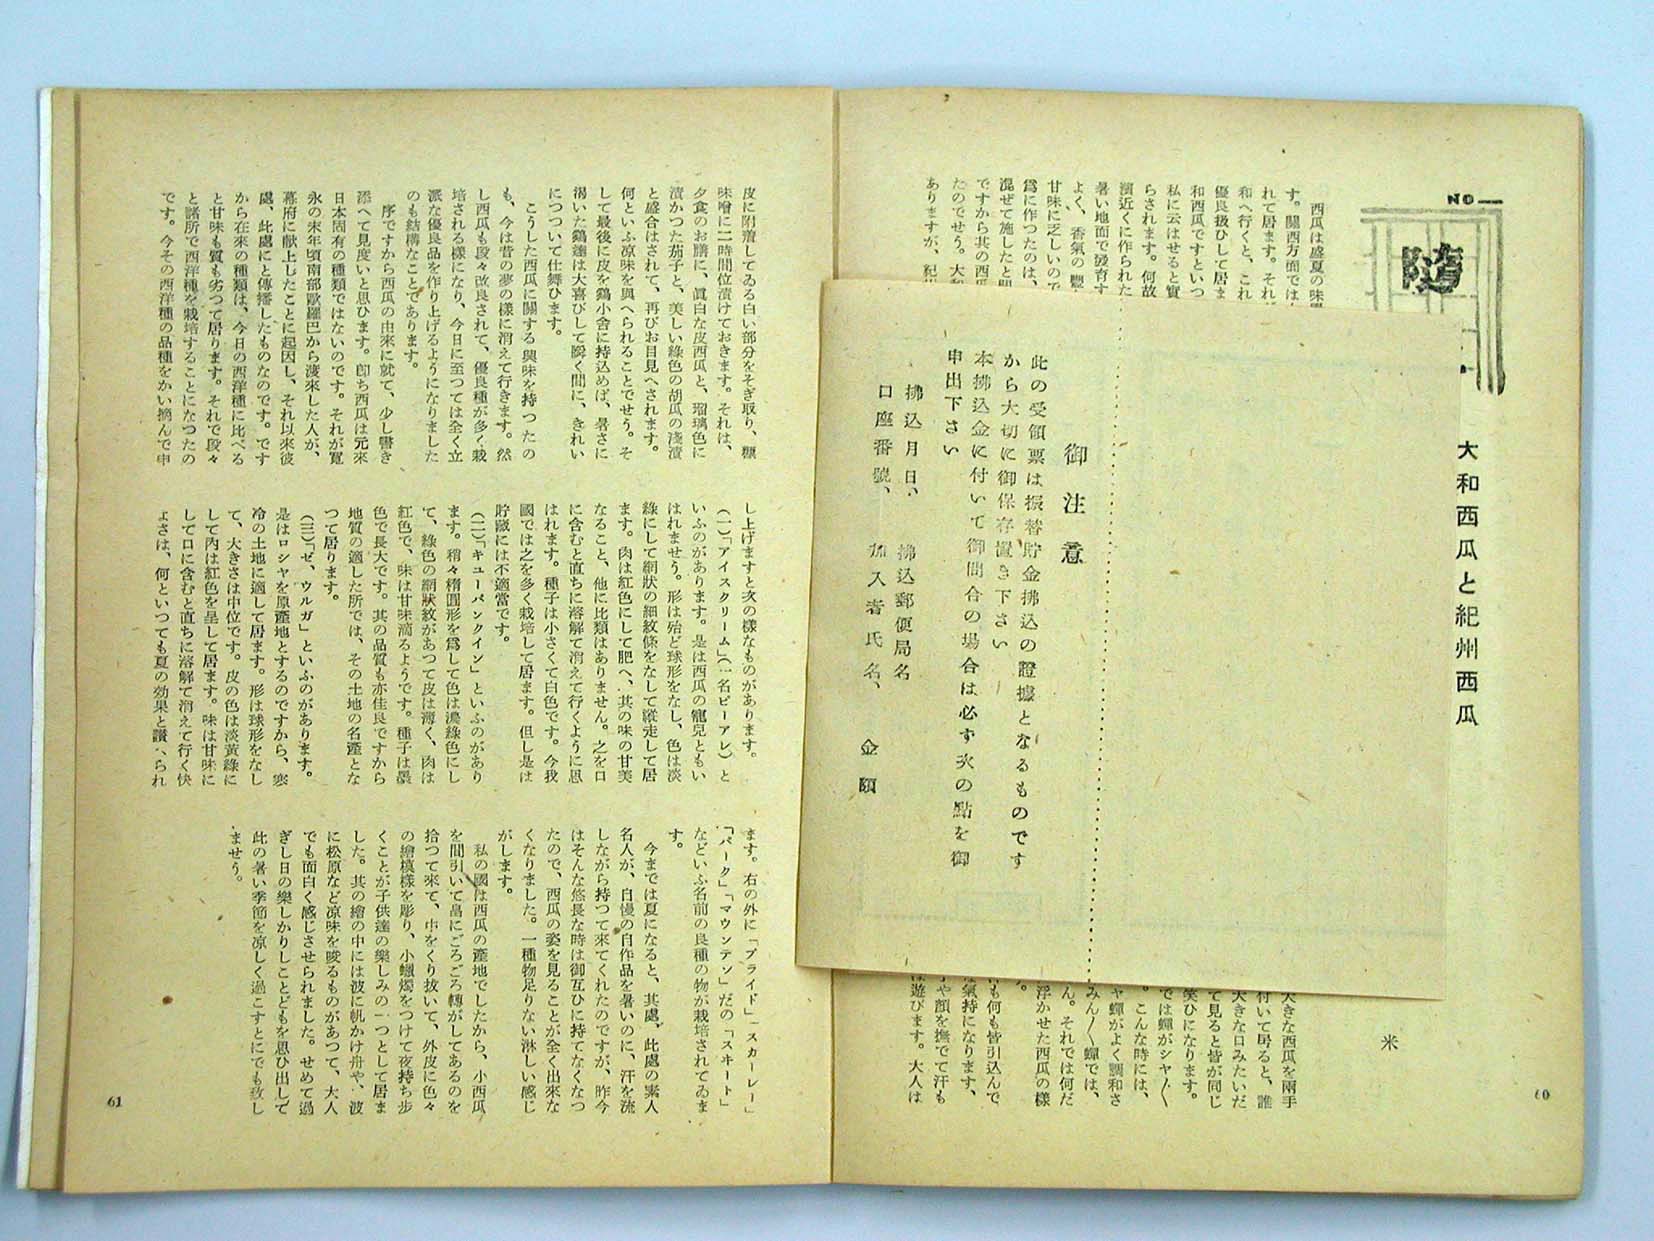 NO
随
大和西瓜と紀州西瓜
米
西瓜は盛夏の味
す。關西方面では
れて居ます。それ
和へ行くと、これ
優良扱ひして居ま
和西瓜ですといつ
私に云はせると實
らされます。何故
濱近くに作られた
暑い地面で發育す
よく、香氣の豐
甘味に乏しいので
爲に作つたのは、
混ぜて施したと聞
ですから其の西瓜
たのでせう。大和
ありますが、紀州
大きな西瓜を兩手
付いて居ると、誰
大きな口みたいだ
て見ると皆が同じ
笑ひになります。
では蟬がシヤ〳〵
。こんな時には、
ヤ蟬がよく調和さ
みん〳〵蟬では、
ん。それでは何だ
浮かせた西瓜の樣
。
も何も皆引込んで
氣持になります、
や顏を撫でて汗も
遊びます。大人は
60
御注意
此の受領票は振替貯金拂込の證據となるものです
から大切に御保存置き下さい
本拂込金に付いて御問合の場合は必ず次の點を御
申出下さい
拂込月日、 拂込郵便局名
口座番號、 加入者氏名、 金額
皮に附着してゐる白い部分をそぎ取り、糠
味噌に二時間位漬けておきます。それは、
夕食のお膳に、眞白な皮西瓜と、瑠璃色に
漬かつた茄子と、美しい綠色の胡瓜の淺漬
と盛合はされて、再びお目見へされます。
何といふ凉味を與へられることでせう。そ
して最後に皮を鷄小舍に持込めば、暑さに
渴いた鷄達は大喜びして瞬く間に、きれい
につついて仕舞ひます。
こうした西瓜に關する興味を持つたの
も、今は昔の夢の樣に消えて行きます。然
し西瓜も段々改良されて、優良種が多く栽
培される樣になり、今日に至つては全く立
派な優良品を作り上げるようになりました
のも結構なことであります。
序ですから西瓜の由來に就て、少し書き
添へて見度いと思ひます。卽ち西瓜は元來
日本固有の種類ではないのです。それが寬
永の末年頃南部歐羅巴から渡來した人が、
幕府に獻上したことに起因し、それ以來彼
處、此處にと傳播したものなのです。です
から在來の種類は、今日の西洋種に比べる
と甘味も質も劣つて居ります。それで段々
と諸所で西洋種を栽培することになつたの
です。今その西洋種の品種をかい摘んで申
し上げますと次の樣なものがあります。
(一)「アイスクリーム」(一名ピーアレ)と
いふのがあります。是は西瓜の寵兒ともい
はれませう。形は殆ど球形をなし、色は淡
綠にして網狀の細紋條をなして縱走して居
ます。肉は紅色にして肥へ、其の味の甘美
なること、他に比類はありません。之を口
に含むと直ちに溶解て消えて行くように思
はれます。種子は小さくて白色です。今我
國では之を多く栽培して居ます。但し是は
貯藏には不適當です。
(二)「キューバンクイン」といふのがあり
ます。稍々橢圓形を爲して色は濃綠色にし
て、綠色の網狀紋があつて皮は薄く、肉は
紅色で、味は甘味滴るようです。種子は墨
色で長大です。其の品質も亦佳良ですから
地質の適した所では、その土地の名產とな
つて居ります。
(三)「ゼ、ウルガ」といふのがあります。
是はロシヤを原產地とするのですから、寒
冷の土地に適して居ます。形は球形をなし
て、大きさは中位です。皮の色は淡黃綠に
して內は紅色を呈して居ます。味は甘味に
して口に含むと直ちに溶解て消えて行く快
よさは、何といつても夏の効果と讚へられ
ます。右の外に「プライド」「スカーレー」
「パーク」「マウンテン」だの「スキート」
などいふ名前の良種の物が栽培されてゐま
す。
今までは夏になると、其處、此處の素人
名人が、自慢の自作品を暑いのに、汗を流
しながら持つて來てくれたのですが、昨今
はそんな悠長な時は御互ひに持てなくなつ
たので、西瓜の姿を見ることが全く出來な
くなりました。一種物足りない淋しい感じ
がします。
私の國は西瓜の產地でしたから、小西瓜
を間引いて畠にごろごろ轉がしてあるのを
拾つて來て、中をくり拔いて、外皮に色々
の繪模樣を彫り、小蠟燭をつけて夜持ち步
くことが子供達の樂しみの一つとして居ま
した。其の繪の中には波に帆かけ舟や、波
に松原など凉味を唆るものがあつて、大人
でも面白く感じさせられました。せめて過
ぎし日の樂しかりしことどもを思ひ出して
此の暑い季節を凉しく過こすとにでも致し
ませう。
61